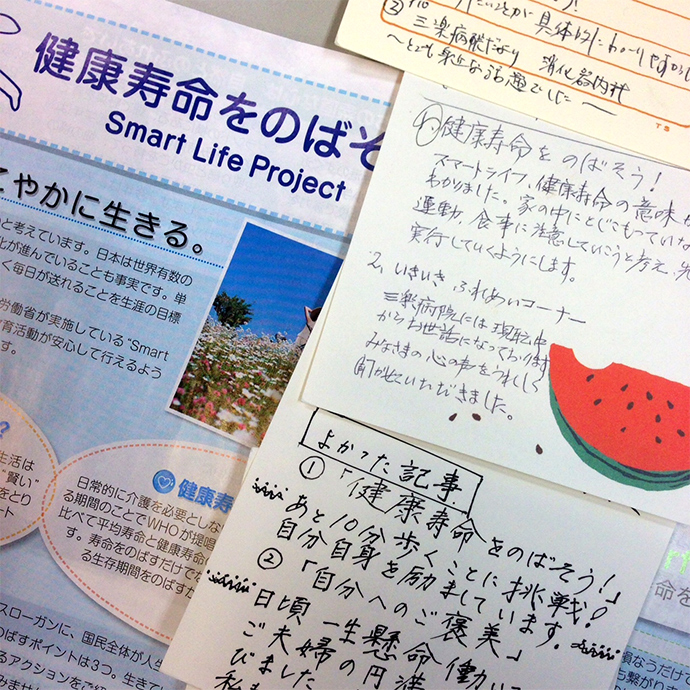 健康寿命をのばそ
Smart Life Project
やかに生きる。
と考えています。日本は世界有数の
化が進んでいることも事実です。単
く毎日が送れることを生涯の目標
労働省が実施している"Smart
育活動が安心して行えるよう
す。
?
生活は
"賢い"
をとり
ート
健康寿
日常的に介護を必要としな
る期間のことでWHOが提唱
比べて平均寿命と健康寿命の
す。寿命をのばすだけでな
る生存期間をのばすか
スローガンに、国民全体が人生
のばすポイントは3つ。生きてい
るアクションをご紹
③
三楽病院だより 消化器内科
〜とても身近な話題でした〜
T S
1. 健康寿命をのばそう!
スマートライフ、健康寿命の意味
わかりました。家の中にとじこもっていな
運動、食事に注意していこうと考え、
実行していくようにします。
2. いきいきふれあいコーナー
三楽病院には現転中
からお世話になっております
みなさまの心の声をうれしく
聞かせていただきました。
よかった記事
①「健康寿命をのばそう!」
あと10分歩くことに挑戦!
自分自身を励ましています。
②「自分へのご褒美」
日頃一生懸命働い
ご夫婦の円満
びました
損なうだけで